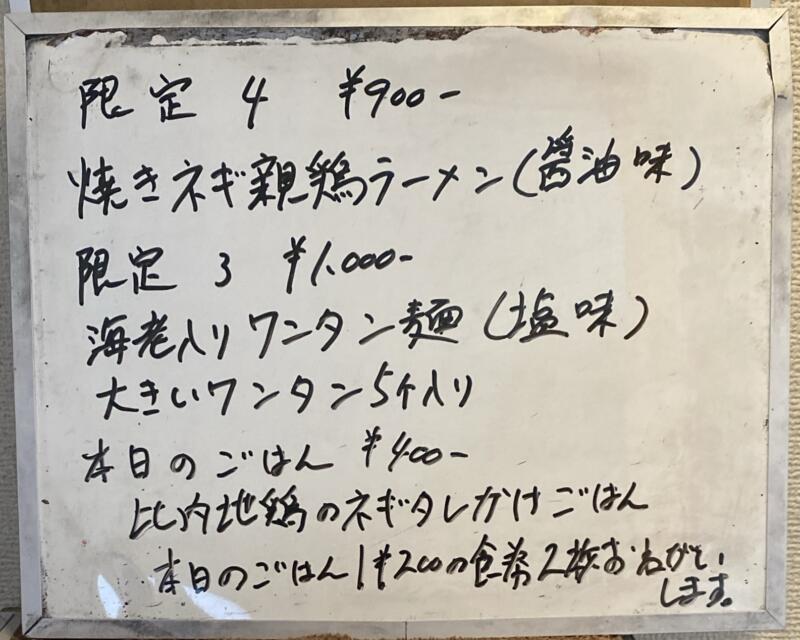 限定 4 ¥900-
焼きネギ親鶏ラーメン(醤油味)
限定 3 ¥1.000-
海老入りワンタン麺(塩味)
大きいワンタン5ヶ入り
本日のごはん ¥400-
比内地鶏のネギタレかけごはん
本日のごはん1¥200の食券2枚おねがい
します。